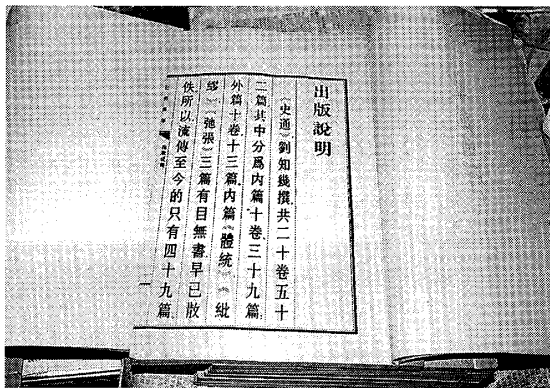 出版說明
《史通》劉知幾撰共二十卷五十
二篇其中分爲内篇十卷三十九篇，
外篇十卷十三篇，内篇《體統》《紕
繆》《弛張》三篇有目無書早已散
佚所以流傳至今的只有四十九篇，
一